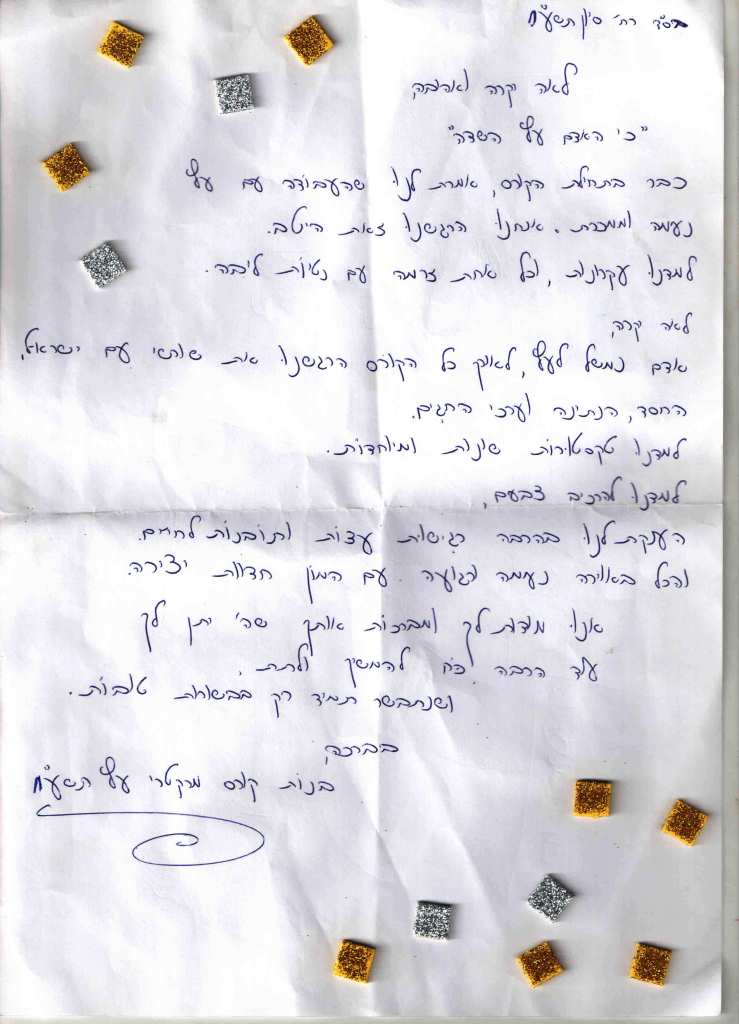 בס"ד רח' סיון תשע"ח
לאה יקרה ואהובה,
"כי האדם עץ השדה"
כבר בתחילת הקורס, אמרת לנו שהעבודה עם עץ
נעמה וממכרת. אנחנו הרגשנו זאת היטב.
למדנו עקרונות, וכל אחת זרמה עם נטיות ליבה.
לאה יקרה,
אדם נמשל לעץ, לאורך כל הקורס הרגשנו את שורשי עם ישראל,
החסד, הנתינה וערכי החגים.
למדנו טקסטורות שונות ומיוחדות.
למדנו להרכיב צבעים,
הענקת לנו בהרבה רגישות עצות ותובנות לחיים.
והכל באוירה נעמה ורגועה. עם המון חדוות יצירה.
אנו מודות לך ומברכות אותך שה' יתן לך
עוד הרבה כח להמשיך ולתת,
ושנתבשר תמיד רק בבשורות טובות.
בברכה,
בנות קורס מרקטרי עץ תשע"ח